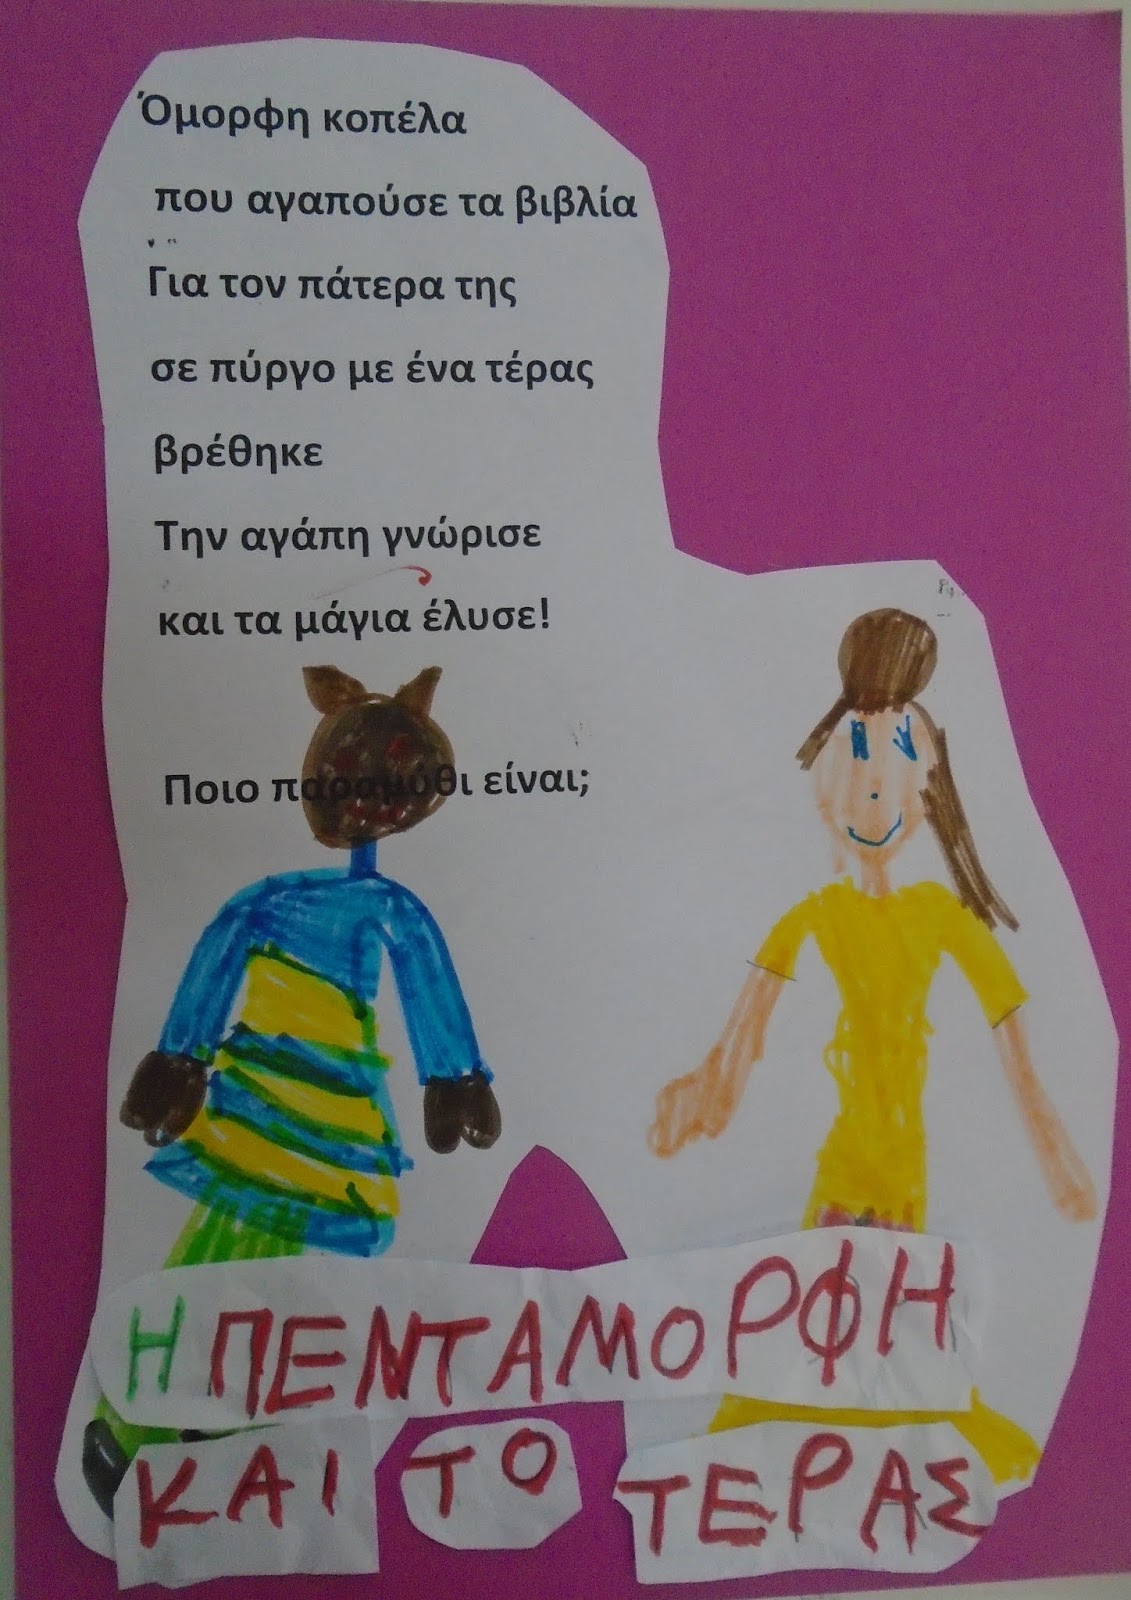 Όμορφη κοπέλα
που αγαπούσε τα βιβλία
Για τον πάτερα της
σε πύργο με ένα τέρας
βρέθηκε
Την αγάπη γνώρισε
και τα μάγια έλυσε!
Ποιο παραμύθι είναι;
Η ΠΕΝΤΑΜΟΡΦΗ
ΚΑΙ ΤΟ ΤΕΡΑΣ